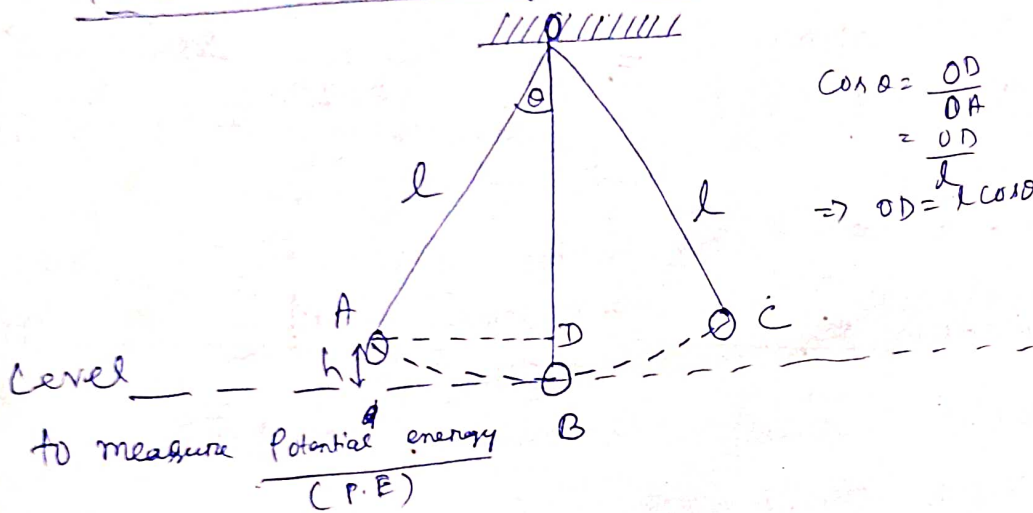 O
θ
Cos θ = OD / OA
= OD / l
=> OD = l cosθ
l
l
A
D
C
h
Level
B
to measure Potential energy
(P.E)